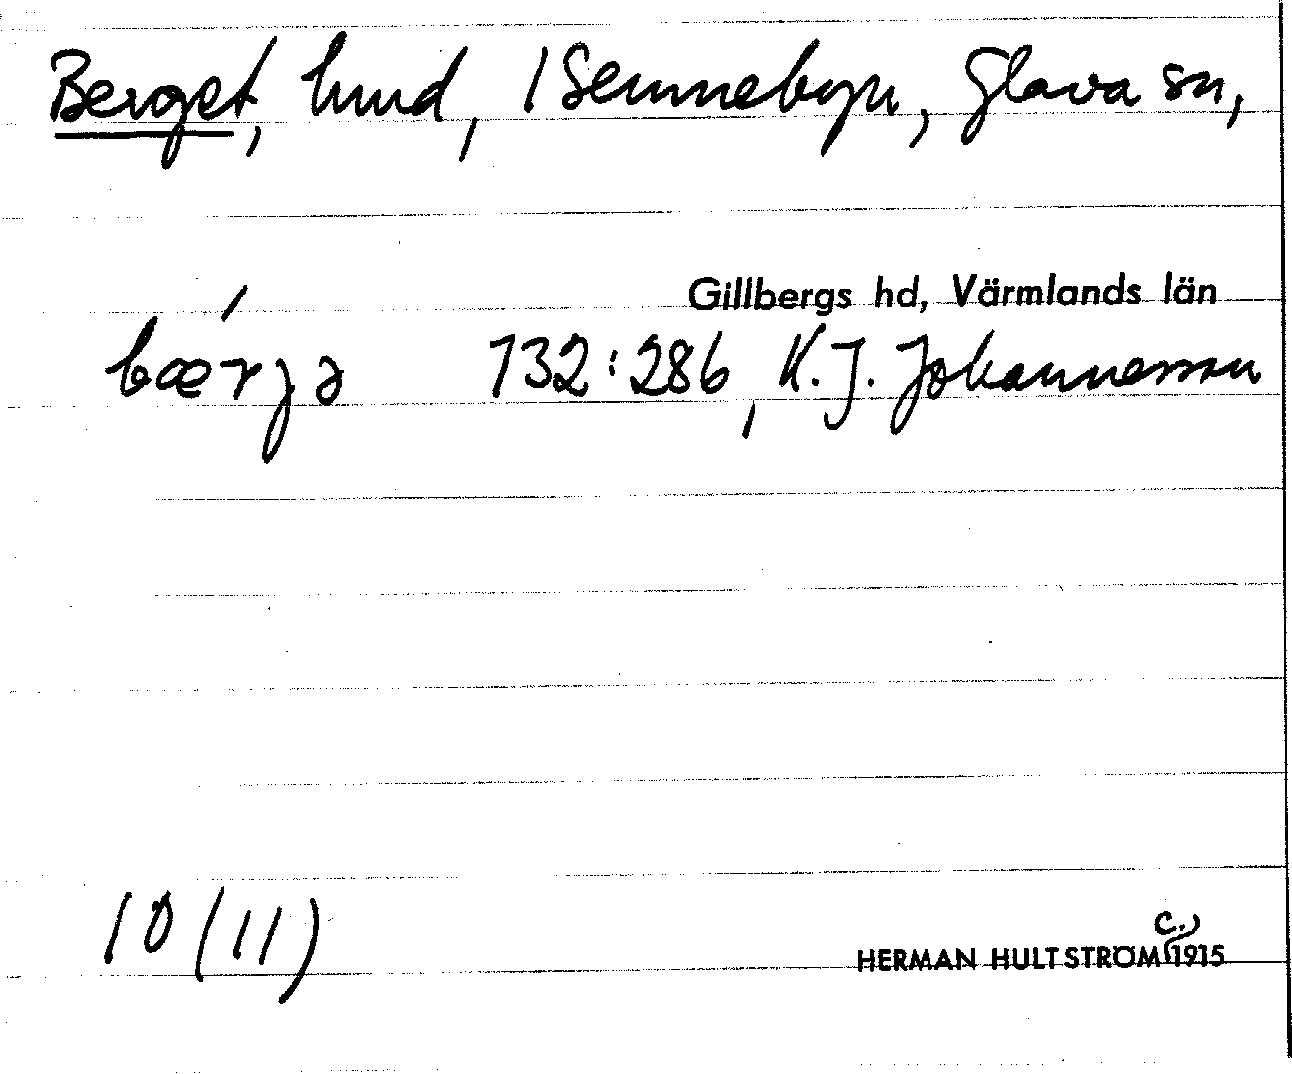 Berget, lund, 1 Semneby n, Glava sn,
Gillbergs hd, Värmlands län
bærjə 132:286, K. J. Johannesson
10 (11)
HERMAN HULTSTRÖM c. 1915